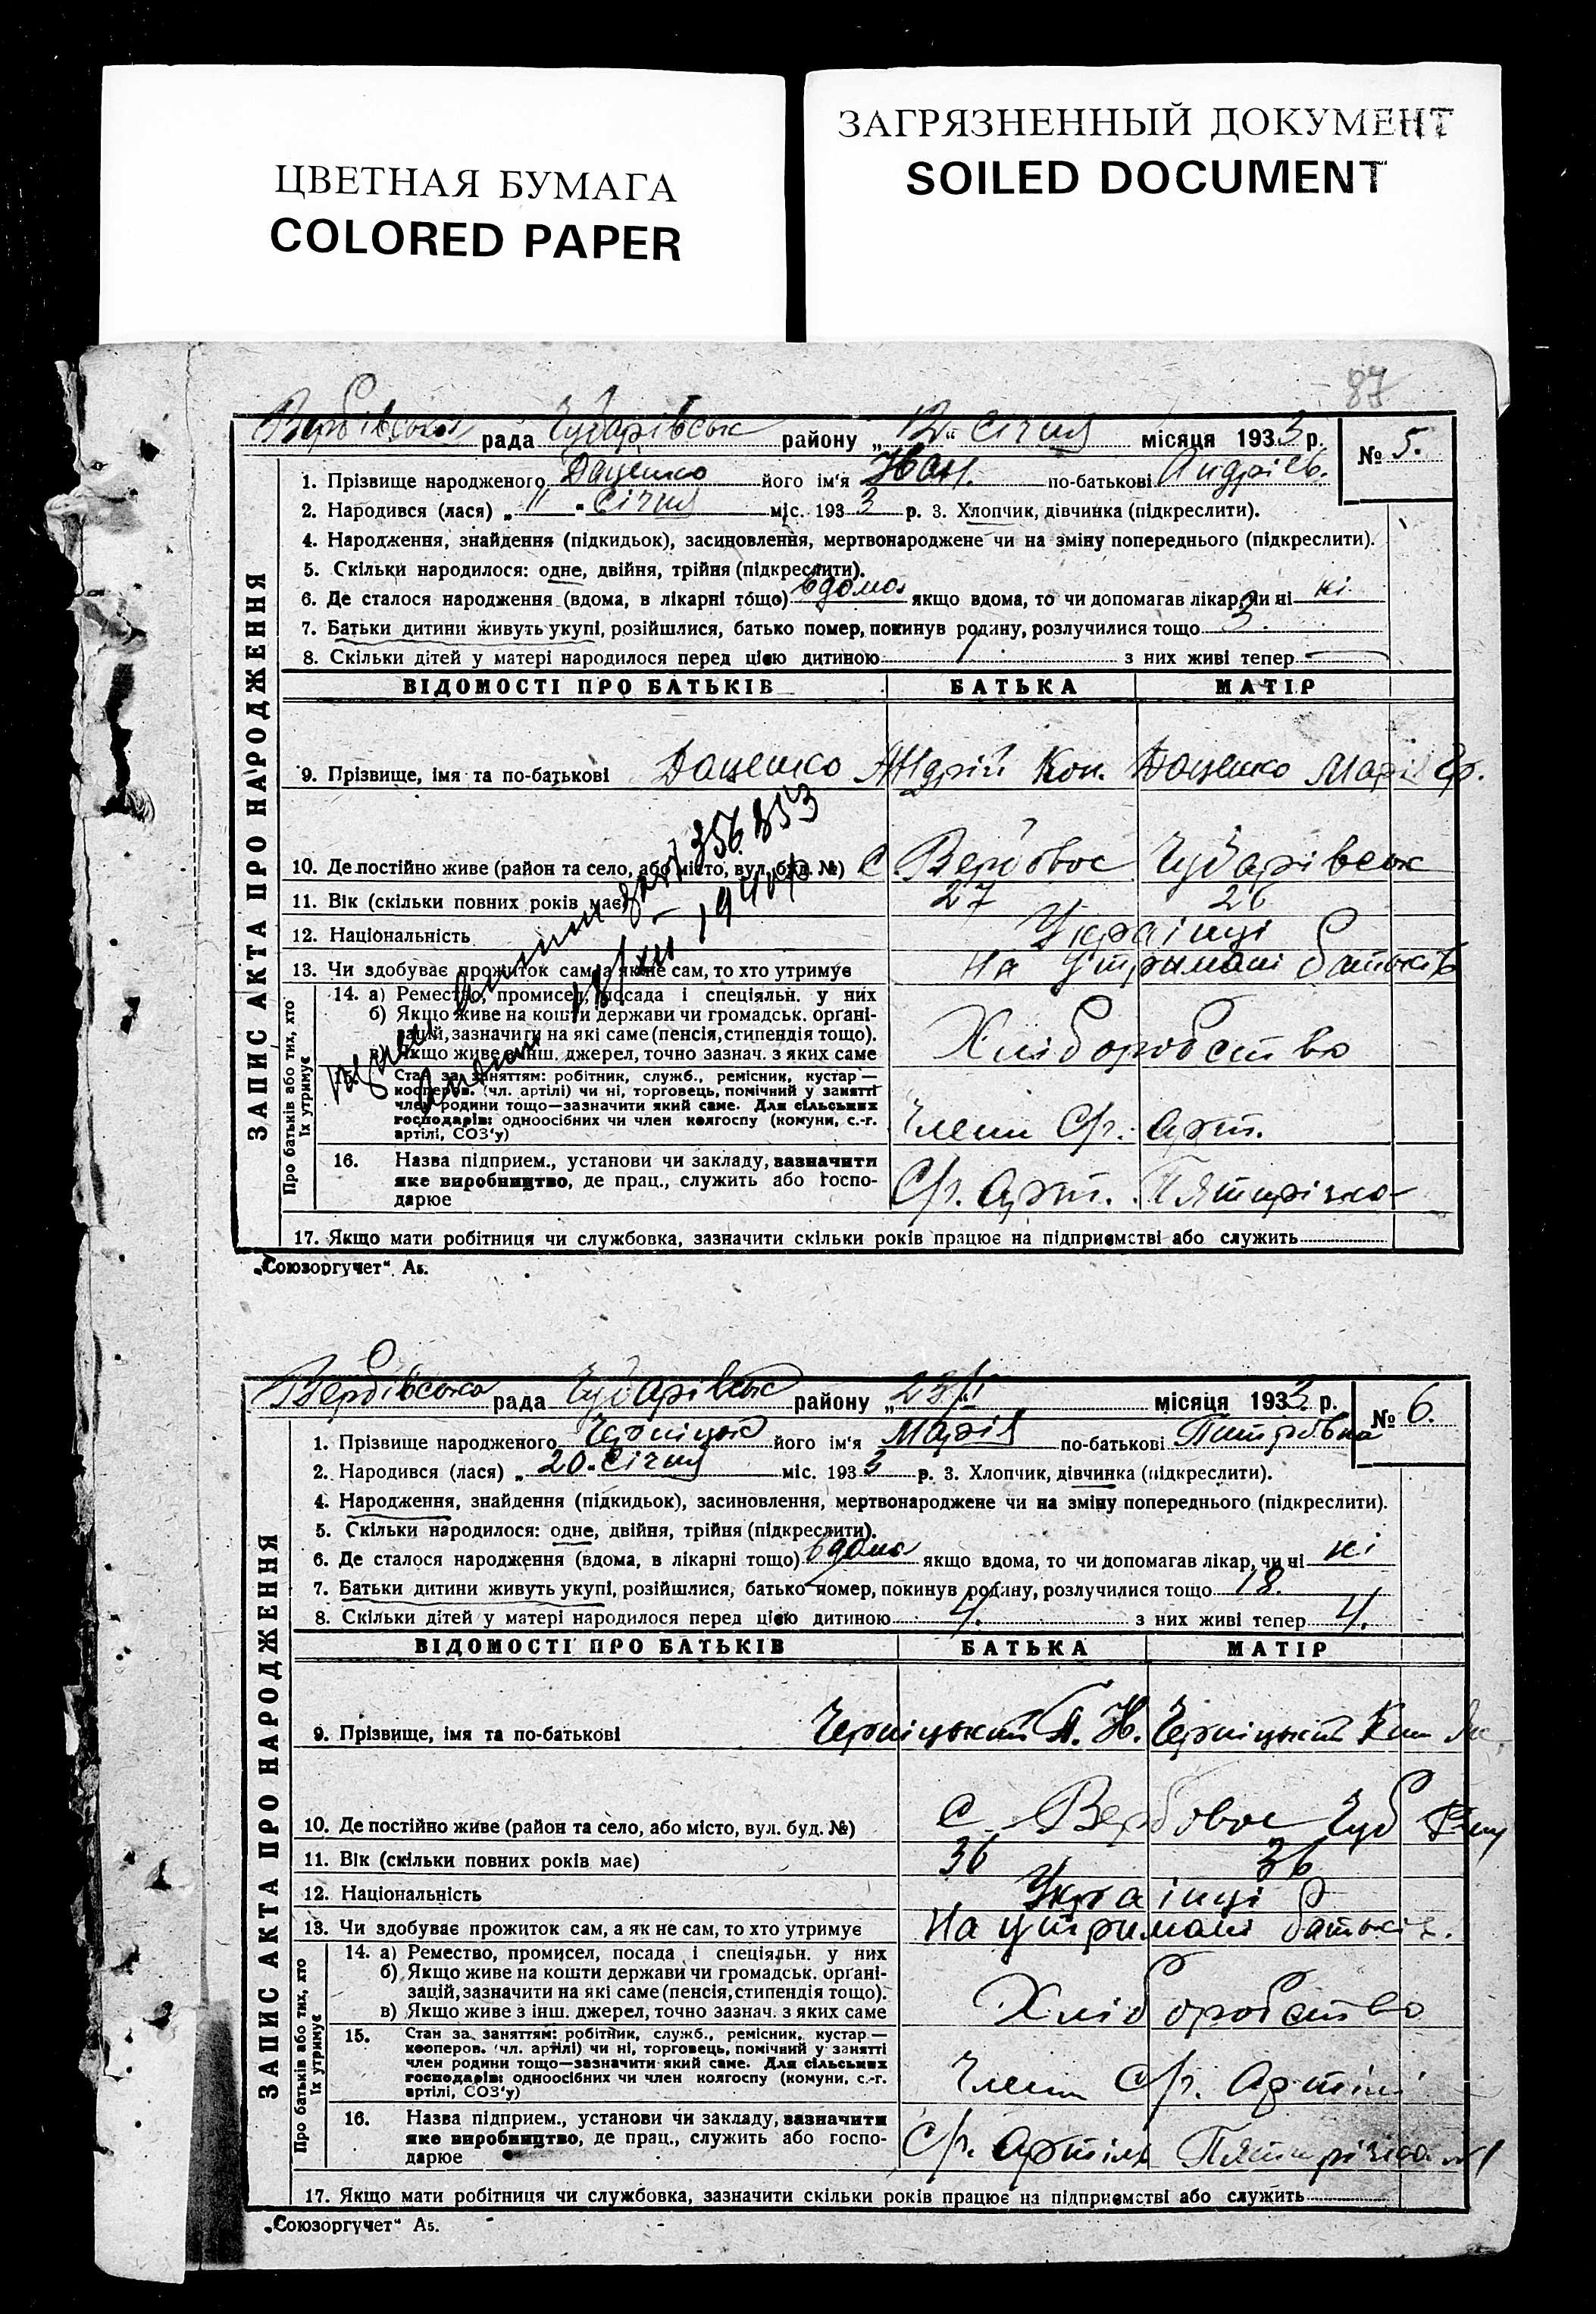 ЦВЕТНАЯ БУМАГА
COLORED PAPER
ЗАГРЯЗНЕННЫЙ ДОКУМЕНТ
SOILED DOCUMENT
87
ЗАПИС АКТА ПРО НАРОДЖЕННЯ
Вербівська рада Чубарівськ району „12“ січня місяця 1933 р. № 5.
1. Прізвище народженого Даценко його ім'я Іван. по-батькові Андріев.
2. Народився (лася) „11“ Січня міс. 1933 р. 3. Хлопчик, дівчинка (підкреслити).
4. Народження, знайдення (підкидьок), засиновлення, мертвонароджене чи на зміну попереднього (підкреслити).
5. Скільки народилося: одне, двійня, трійня (підкреслити).
6. Де сталося народження (вдома, в лікарні тощо) вдома якщо вдома, то чи допомагав лікар, чи ні ні
7. Батьки дитини живуть укупі, розійшлися, батько помер, покинув родину, розлучилися тощо 3.
8. Скільки дітей у матері народилося перед цією дитиною з них живі тепер —
ВІДОМОСТІ ПРО БАТЬКІВ БАТЬКА МАТІР
9. Прізвище, імя та по-батькові Даценко Андрій Кон. Даценко Марія Гр.
10. Де постійно живе (район та село, або місто, вул. буд. №) С Вербовое Чубарівськ
11. Вік (скільки повних років має) 27 26
12. Національність Українці
13. Чи здобуває прожиток сам, а як не сам, то хто утримує на утримані батьків
Про батьків або тих, хто їх утримує
14. а) Ремество, промисел, посада і спеціяльн. у них
б) Якщо живе на кошти держави чи громадськ. органі-
зацій, зазначити на які саме (пенсія, стипендія тощо).
в) Якщо живе з інш. джерел, точно зазнач. з яких саме
Хліборобство
15. Стан за заняттям: робітник, служб., ремісник, кустар —
кооперов. (чл. артілі) чи ні, торговець, помічний у занятті
член родини тощо—зазначити який саме. Для сільських
господарів: одноосібних чи член колгоспу (комуни, с.-г.
артілі, СОЗ'у)
Члени С/г. арт.
16. Назва підприєм., установи чи закладу, зазначити
яке виробництво, де прац., служить або госпо-
дарює
С/г. арт. Пятирічка
17. Якщо мати робітниця чи службовка, зазначити скільки років працює на підприємстві або служить
„Союзоргучет“ А5.
356853
18/XII – 1940 р
ЗАПИС АКТА ПРО НАРОДЖЕННЯ
Вербівська рада Чубарівськ району „23/I місяця 1933 р. № 6.
1. Прізвище народженого його ім'я Марія по-батькові Питрівна
2. Народився (лася) „20“ Січня міс. 1933 р. 3. Хлопчик, дівчинка (підкреслити).
4. Народження, знайдення (підкидьок), засиновлення, мертвонароджене чи на зміну попереднього (підкреслити).
5. Скільки народилося: одне, двійня, трійня (підкреслити).
6. Де сталося народження (вдома, в лікарні тощо) вдома якщо вдома, то чи допомагав лікар, чи ні ні
7. Батьки дитини живуть укупі, розійшлися, батько помер, покинув родину, розлучилися тощо 18.
8. Скільки дітей у матері народилося перед цією дитиною 4. з них живі тепер 4.
ВІДОМОСТІ ПРО БАТЬКІВ БАТЬКА МАТІР
9. Прізвище, імя та по-батькові
10. Де постійно живе (район та село, або місто, вул. буд. №) С Вербовое Чуб
11. Вік (скільки повних років має) 36 36
12. Національність Українці
13. Чи здобуває прожиток сам, а як не сам, то хто утримує на утримані батьків.
Про батьків або тих, хто їх утримує
14. а) Ремество, промисел, посада і спеціяльн. у них
б) Якщо живе на кошти держави чи громадськ. органі-
зацій, зазначити на які саме (пенсія, стипендія тощо).
в) Якщо живе з інш. джерел, точно зазнач. з яких саме
Хліборобство
15. Стан за заняттям: робітник, служб., ремісник, кустар —
кооперов. (чл. артілі) чи ні, торговець, помічний у занятті
член родини тощо—зазначити який саме. Для сільських
господарів: одноосібних чи член колгоспу (комуни, с.-г.
артілі, СОЗ'у)
Члени С/г. Артілі
16. Назва підприєм., установи чи закладу, зазначити
яке виробництво, де прац., служить або госпо-
дарює
С/г. Артіль Пятирічка №1
17. Якщо мати робітниця чи службовка, зазначити скільки років працює на підприємстві або служить
„Союзоргучет“ А5.